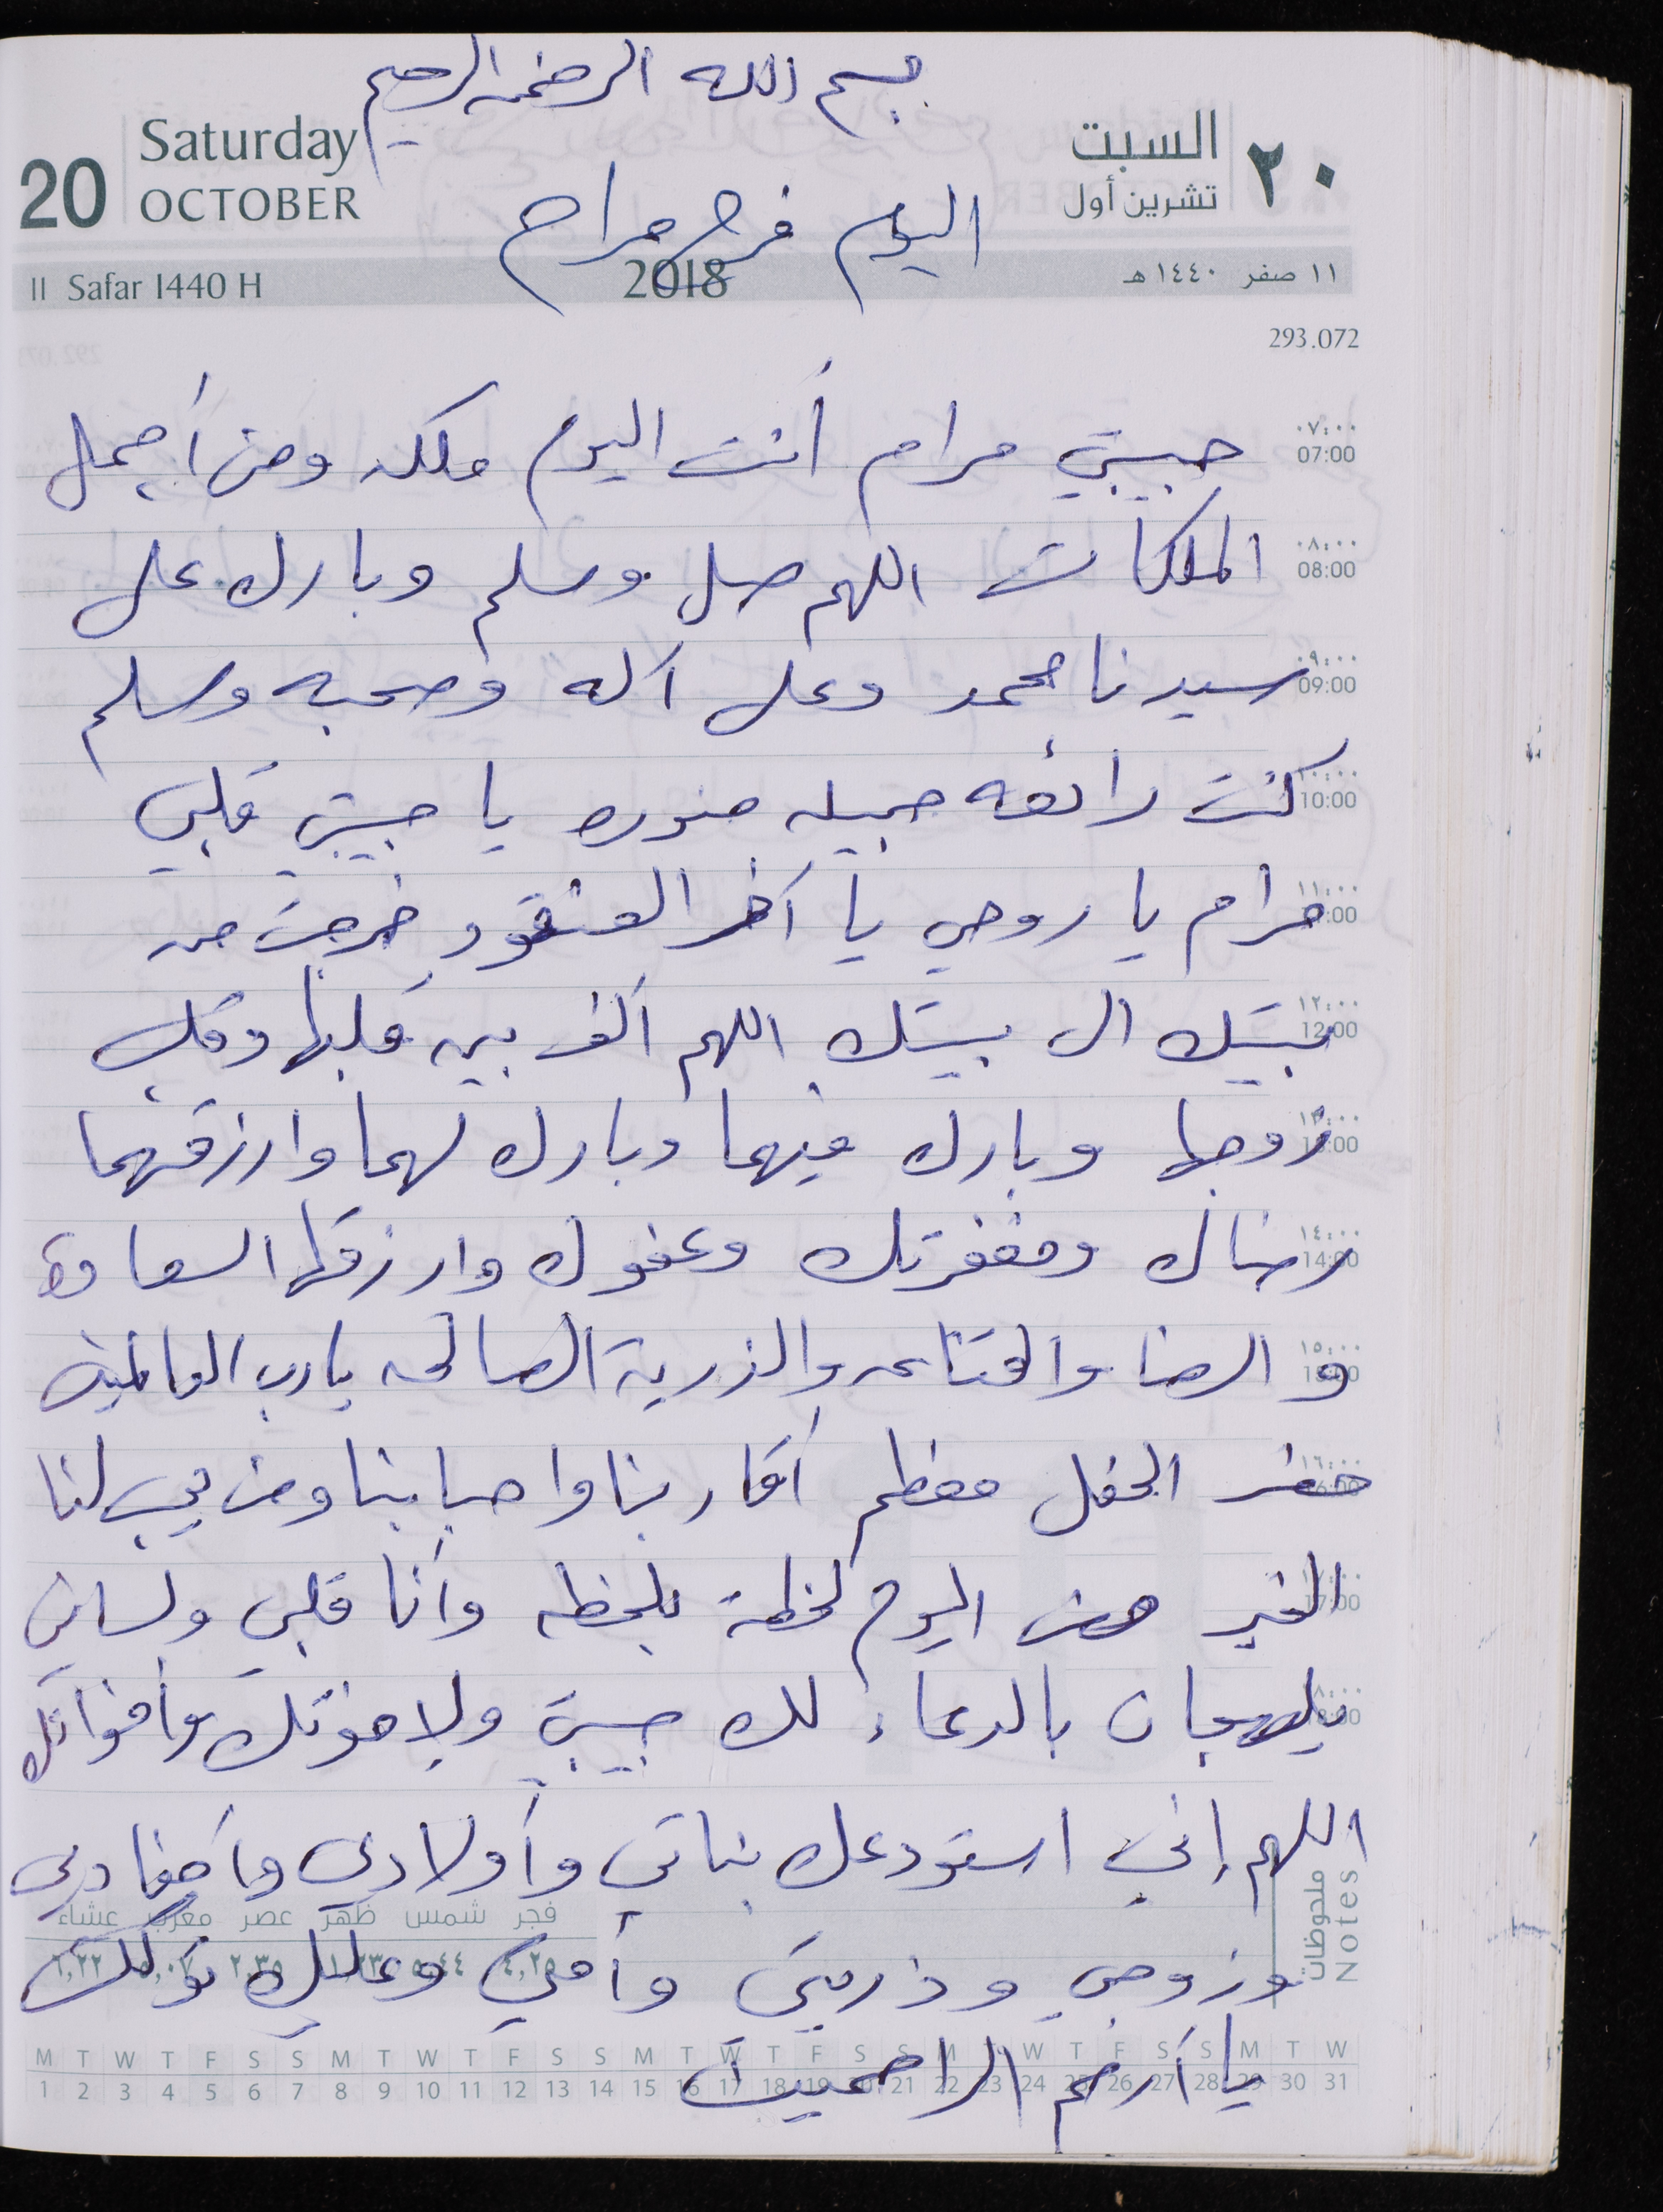 بسم الله الرحمن الرحيم
20 Saturday OCTOBER
السبت ٢٠
تشرين أول
اليوم فرح مرام
11 Safar 1440 H 2018 ١١ صفر ١٤٤٠ هـ
293.072
٠٧:٠٠ 07:00 حبيبتي مرام أنت اليوم ملكه ومن أجمل
٠٨:٠٠ 08:00 الملكات اللهم صل وسلم وبارك على
٠٩:٠٠ 09:00 سيدنا محمد وعلى آله وصحبه وسلم
١٠:٠٠ 10:00 كنت رائعه جميله منوره يا حبيبتي قلبي
١١:٠٠ 11:00 مرام يا روحي يا آخر العنقود خرجت من
١٢:٠٠ 12:00 بيتك الى بيتك اللهم ألف بين قلبها وقلب
١٣:٠٠ 13:00 زوجها وبارك فيهما وبارك لهما وارزقهما
١٤:٠٠ 14:00 رضاك ومغفرتك وعفوك وارزقها السعادة
١٥:٠٠ 15:00 و الرضا والقناعه والذرية الصالحه يارب العالمين
١٦:٠٠ 16:00 حضر الحفل معظم أقاربنا واحبابنا ومن يحب لنا
١٧:٠٠ 17:00 الخير من اليوم لحظة بلحظه وأنا قلبي ولساني
١٨:٠٠ 18:00 يلهجان بالدعاء لك حبيبتي ولاخوتك وأخواتك
اللهم إني استودعك بناتي وأولادي وأحفادي
ملحوظات Notes
فجر شمس ظهر عصر مغرب عشاء
وزوجي وذريتي وأمي وعليك توكلت
M T W T F S S M T W T F S S M T W T F S S M T W T F S S M T W
1 2 3 4 5 6 7 8 9 10 11 12 13 14 15 16 17 18 19 20 21 22 23 24 25 26 27 28 29 30 31
يا أرحم الراحمين